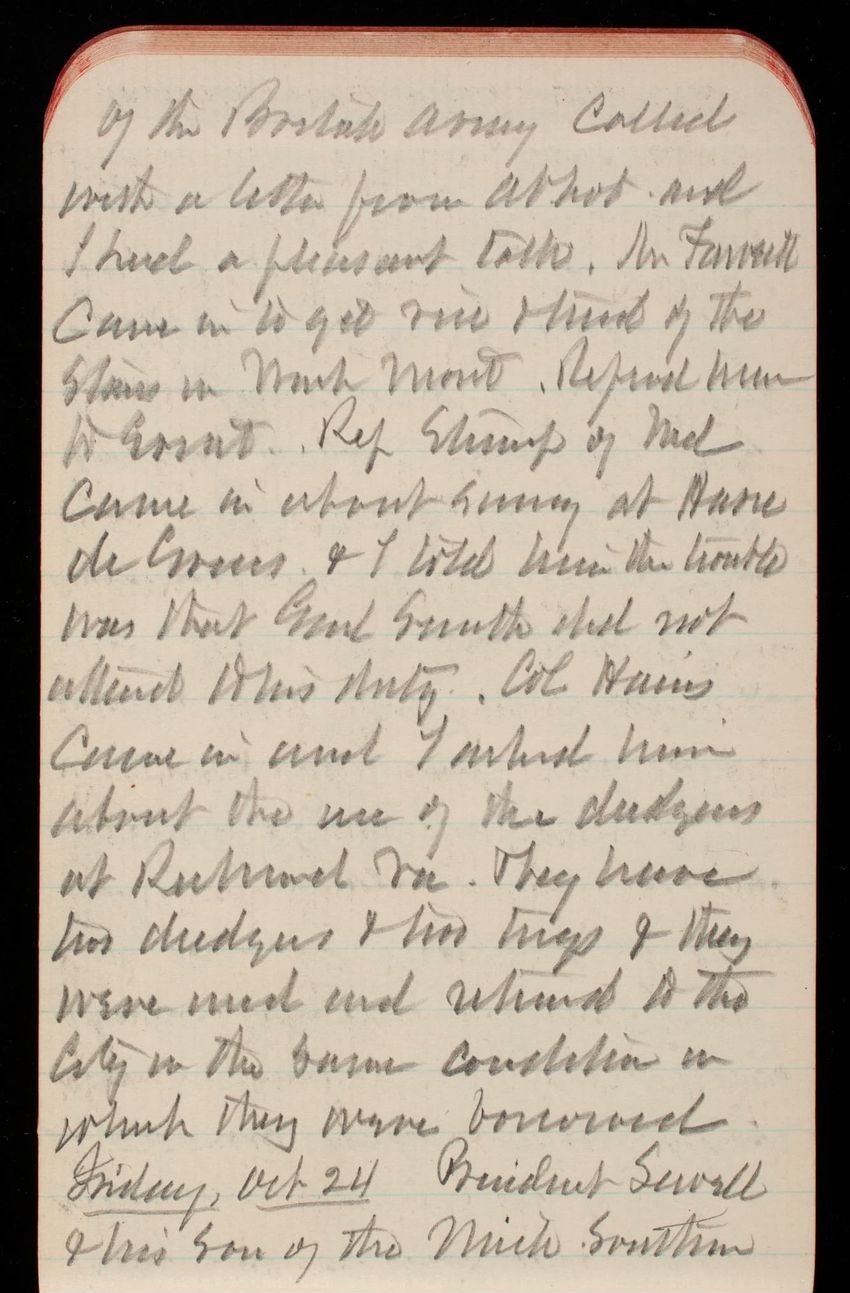 of the British Army called
with a letter from Abbot and
I had a pleasant talk. Mr Farwell
came in to get rice & seed of the
in North Mont. Referred him
to Grant. Rep Stump of Md
came in about survey at Havre
de Grace & I told him the trouble
was that Genl Smith did not
attend to his duty. Col Hains
came in and I asked him
about the use of the dredgers
at Richmond Va. They have
two dredgers & two tugs & they
were used and returned to the
City in the same condition in
which they were borrowed.
Friday, Oct 24 President Sewell
& his son of the Mich Southern